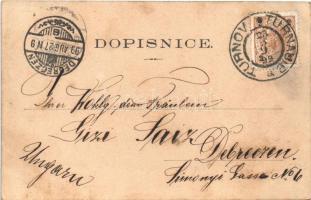 DOPISNICE.
TURNOV TURNAU
DEBRECZEN
99 AUG 27 N 9
Ihrer Wohlg. dior Fräulein
Gizi
Debreczen
Ungarn
Simonyi Gasse No 6